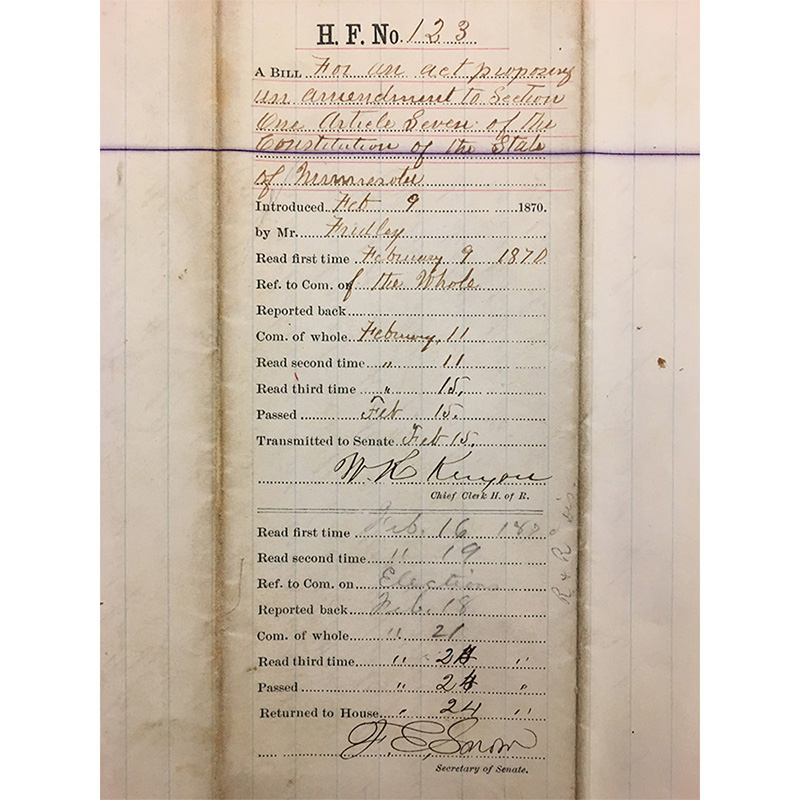 H. F. No. 123
A BILL For an act proposing
an amendment to Section
One Article Seven of the
Constitution of the State
of Minnesota
Introduced Feb 9 1870.
by Mr. Fridley
Read first time February 9 1870
Ref. to Com. on of the Whole
Reported back
Com. of whole February 11
Read second time " 11
Read third time " 15,
Passed Feb 15.
Transmitted to Senate Feb 15,
W. H. Kenyon
Chief Clerk H. of R.
Read first time Feb. 16 1870
Read second time " 19
Ref. to Com. on Elections
Reported back Feb. 18
Com. of whole " 21
Read third time " 24 "
Passed " 24 "
Returned to House " 24 "
F. E. Snow
Secretary of Senate.